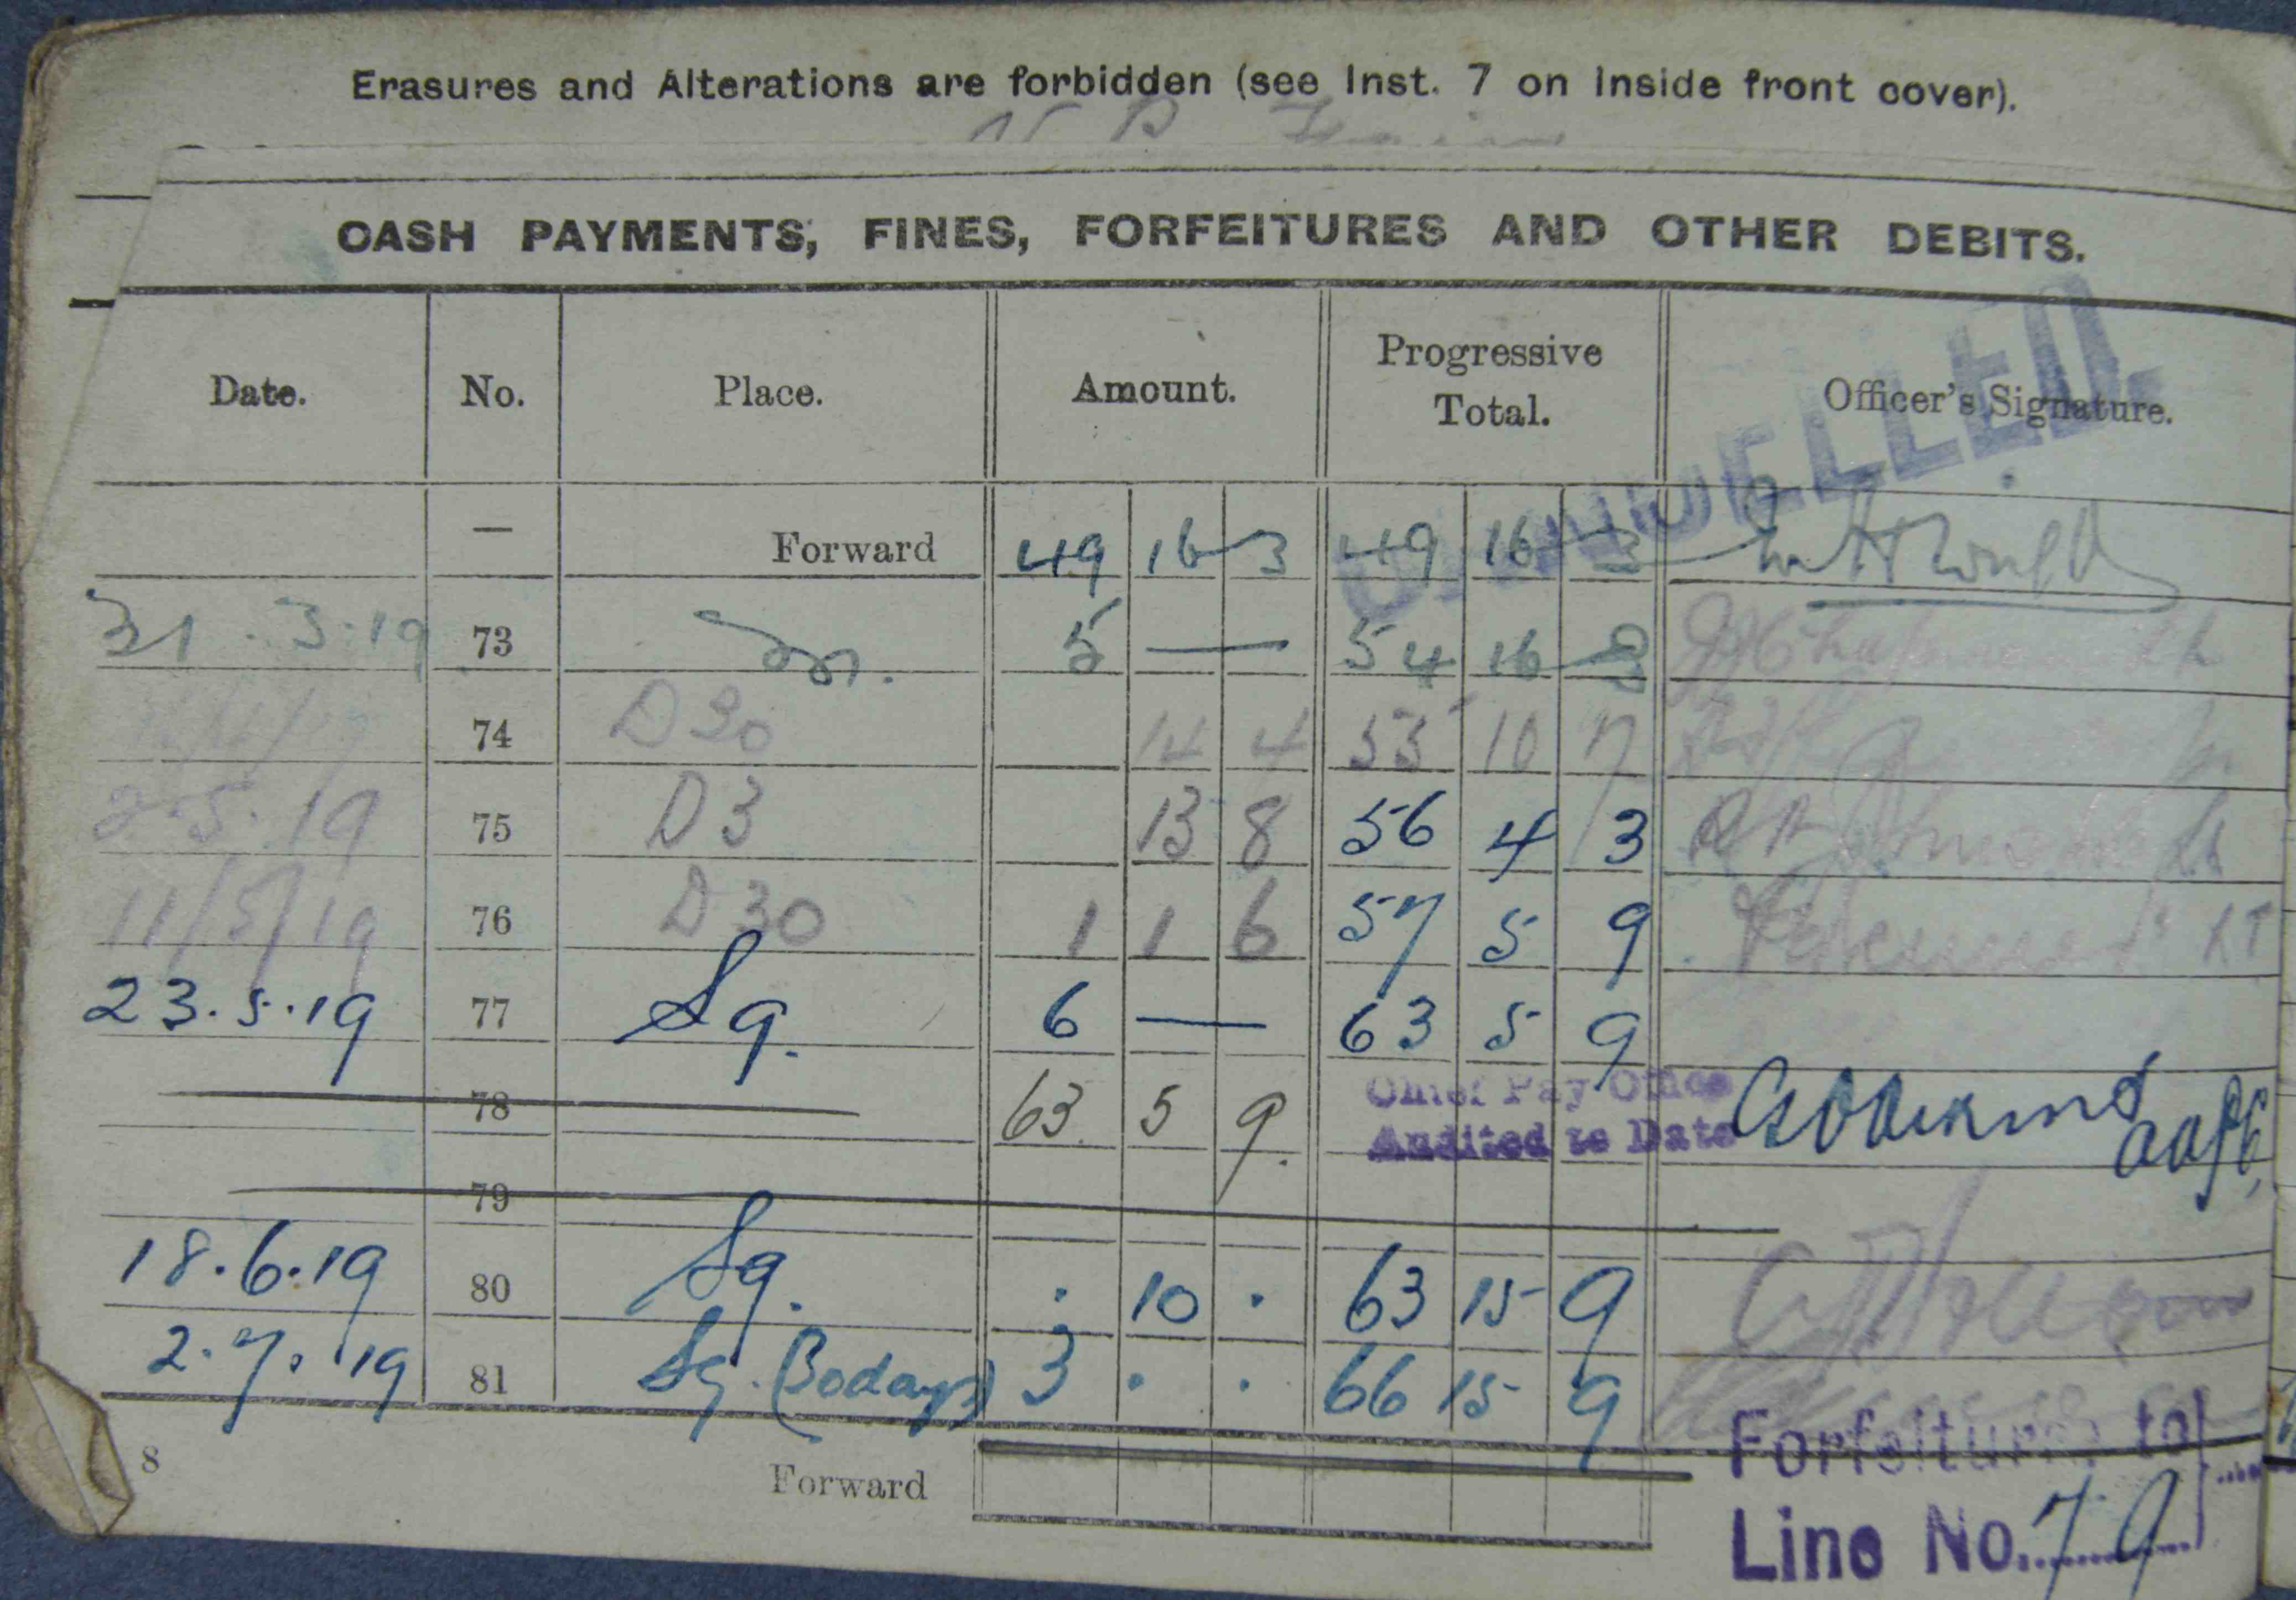 Erasures and Alterations are forbidden (see Inst. 7 on inside front cover).
CASH PAYMENTS, FINES, FORFEITURES AND OTHER DEBITS.
Date. No. Place. Amount. Progressive Total. Officer's Signature.
— Forward 49 16 3 49 16 3
31.3.19 73 5 — 54 16 3
74 D30 14 4 55 10 7
2.5.19 75 D3 13 8 56 4 3
11/5/19 76 D30 1 1 6 57 5 9 LT
23.5.19 77 Sq. 6 — 63 5 9
78 63. 5 9.
Chief Pay Office
Audited to Date
79
18.6.19 80 Sq. . 10 . 63 15 9
2.7.19 81 Sq. (30days) 3 . . 66 15 9
8 Forward
CANCELLED.
Forfeitures to
Line No. 79